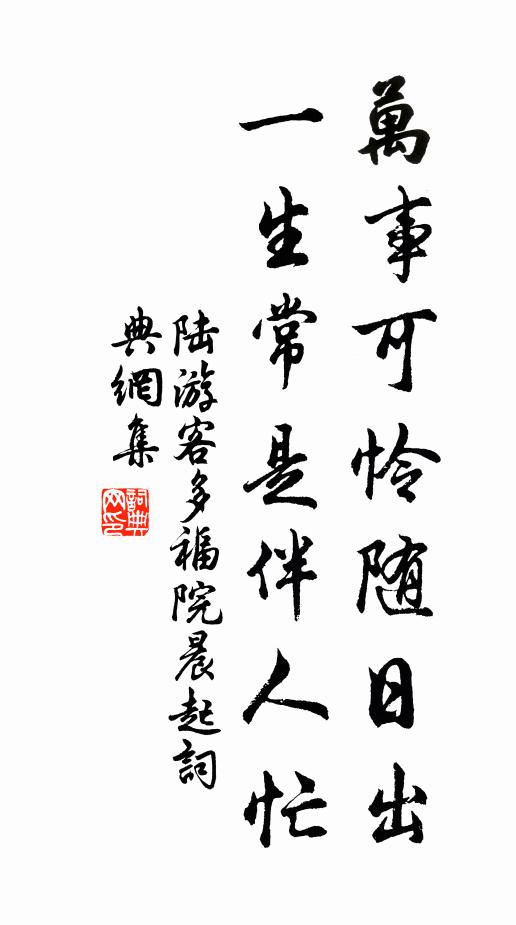 萬事可怜随日出
一生常是伴人忙
陆游客多福院晨起詞
典網集
詞典
网印